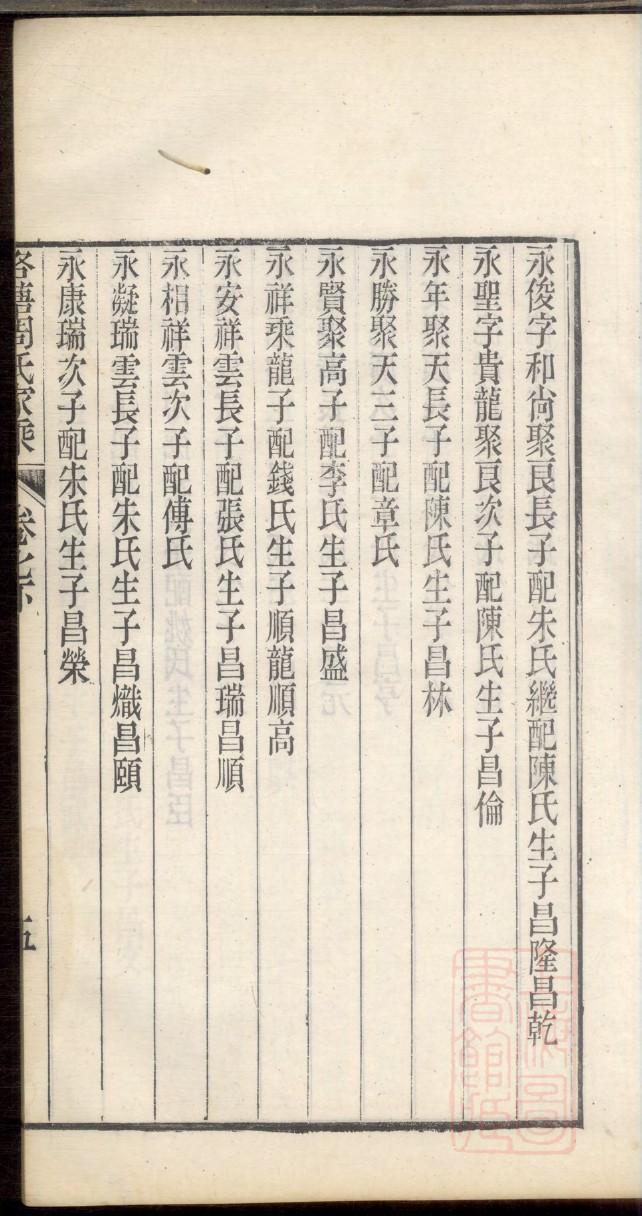 永俊字和尙聚良長子配朱氏繼配陳氏生子昌隆昌乾
永聖字貴龍聚良次子配陳氏生子昌倫
永年聚天長子配陳氏生子昌林
永勝聚天三子配章氏
永賢聚高子配李氏生子昌盛
永祥乘龍子配錢氏生子順龍順高
永安祥雲長子配張氏生子昌瑞昌順
永相祥雲次子配傅氏
永凝瑞雲長子配朱氏生子昌熾昌頤
永康瑞次子配朱氏生子昌榮
周氏家乘 卷之下 五